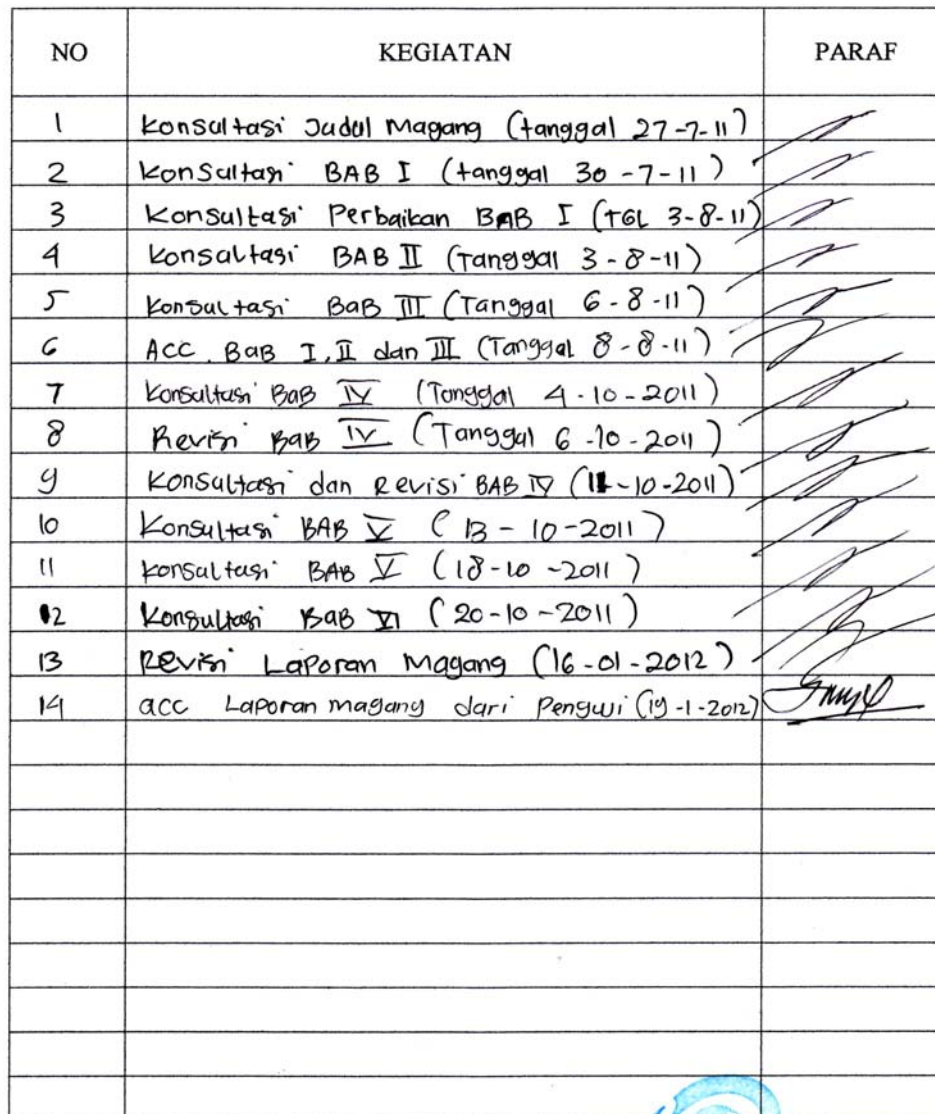 NO KEGIATAN PARAF
1 Konsultasi Judul Magang (tanggal 27-7-11)
2 Konsultasi BAB I (tanggal 30-7-11)
3 Konsultasi Perbaikan BAB I (TGL 3-8-11)
4 Konsultasi BAB II (Tanggal 3-8-11)
5 Konsultasi BaB III (Tanggal 6-8-11)
6 ACC. BaB I, II dan III (Tanggal 8-8-11)
7 Konsultasi BaB IV (Tanggal 4-10-2011)
8 Revisi BaB IV (Tanggal 6-10-2011)
9 Konsultasi dan Revisi BAB IV (11-10-2011)
10 Konsultasi BAB V (13-10-2011)
11 Konsultasi BAB V (18-10-2011)
12 Konsultasi BaB VI (20-10-2011)
13 Revisi Laporan Magang (16-01-2012)
14 acc Laporan magang dari Penguji (19-1-2012)